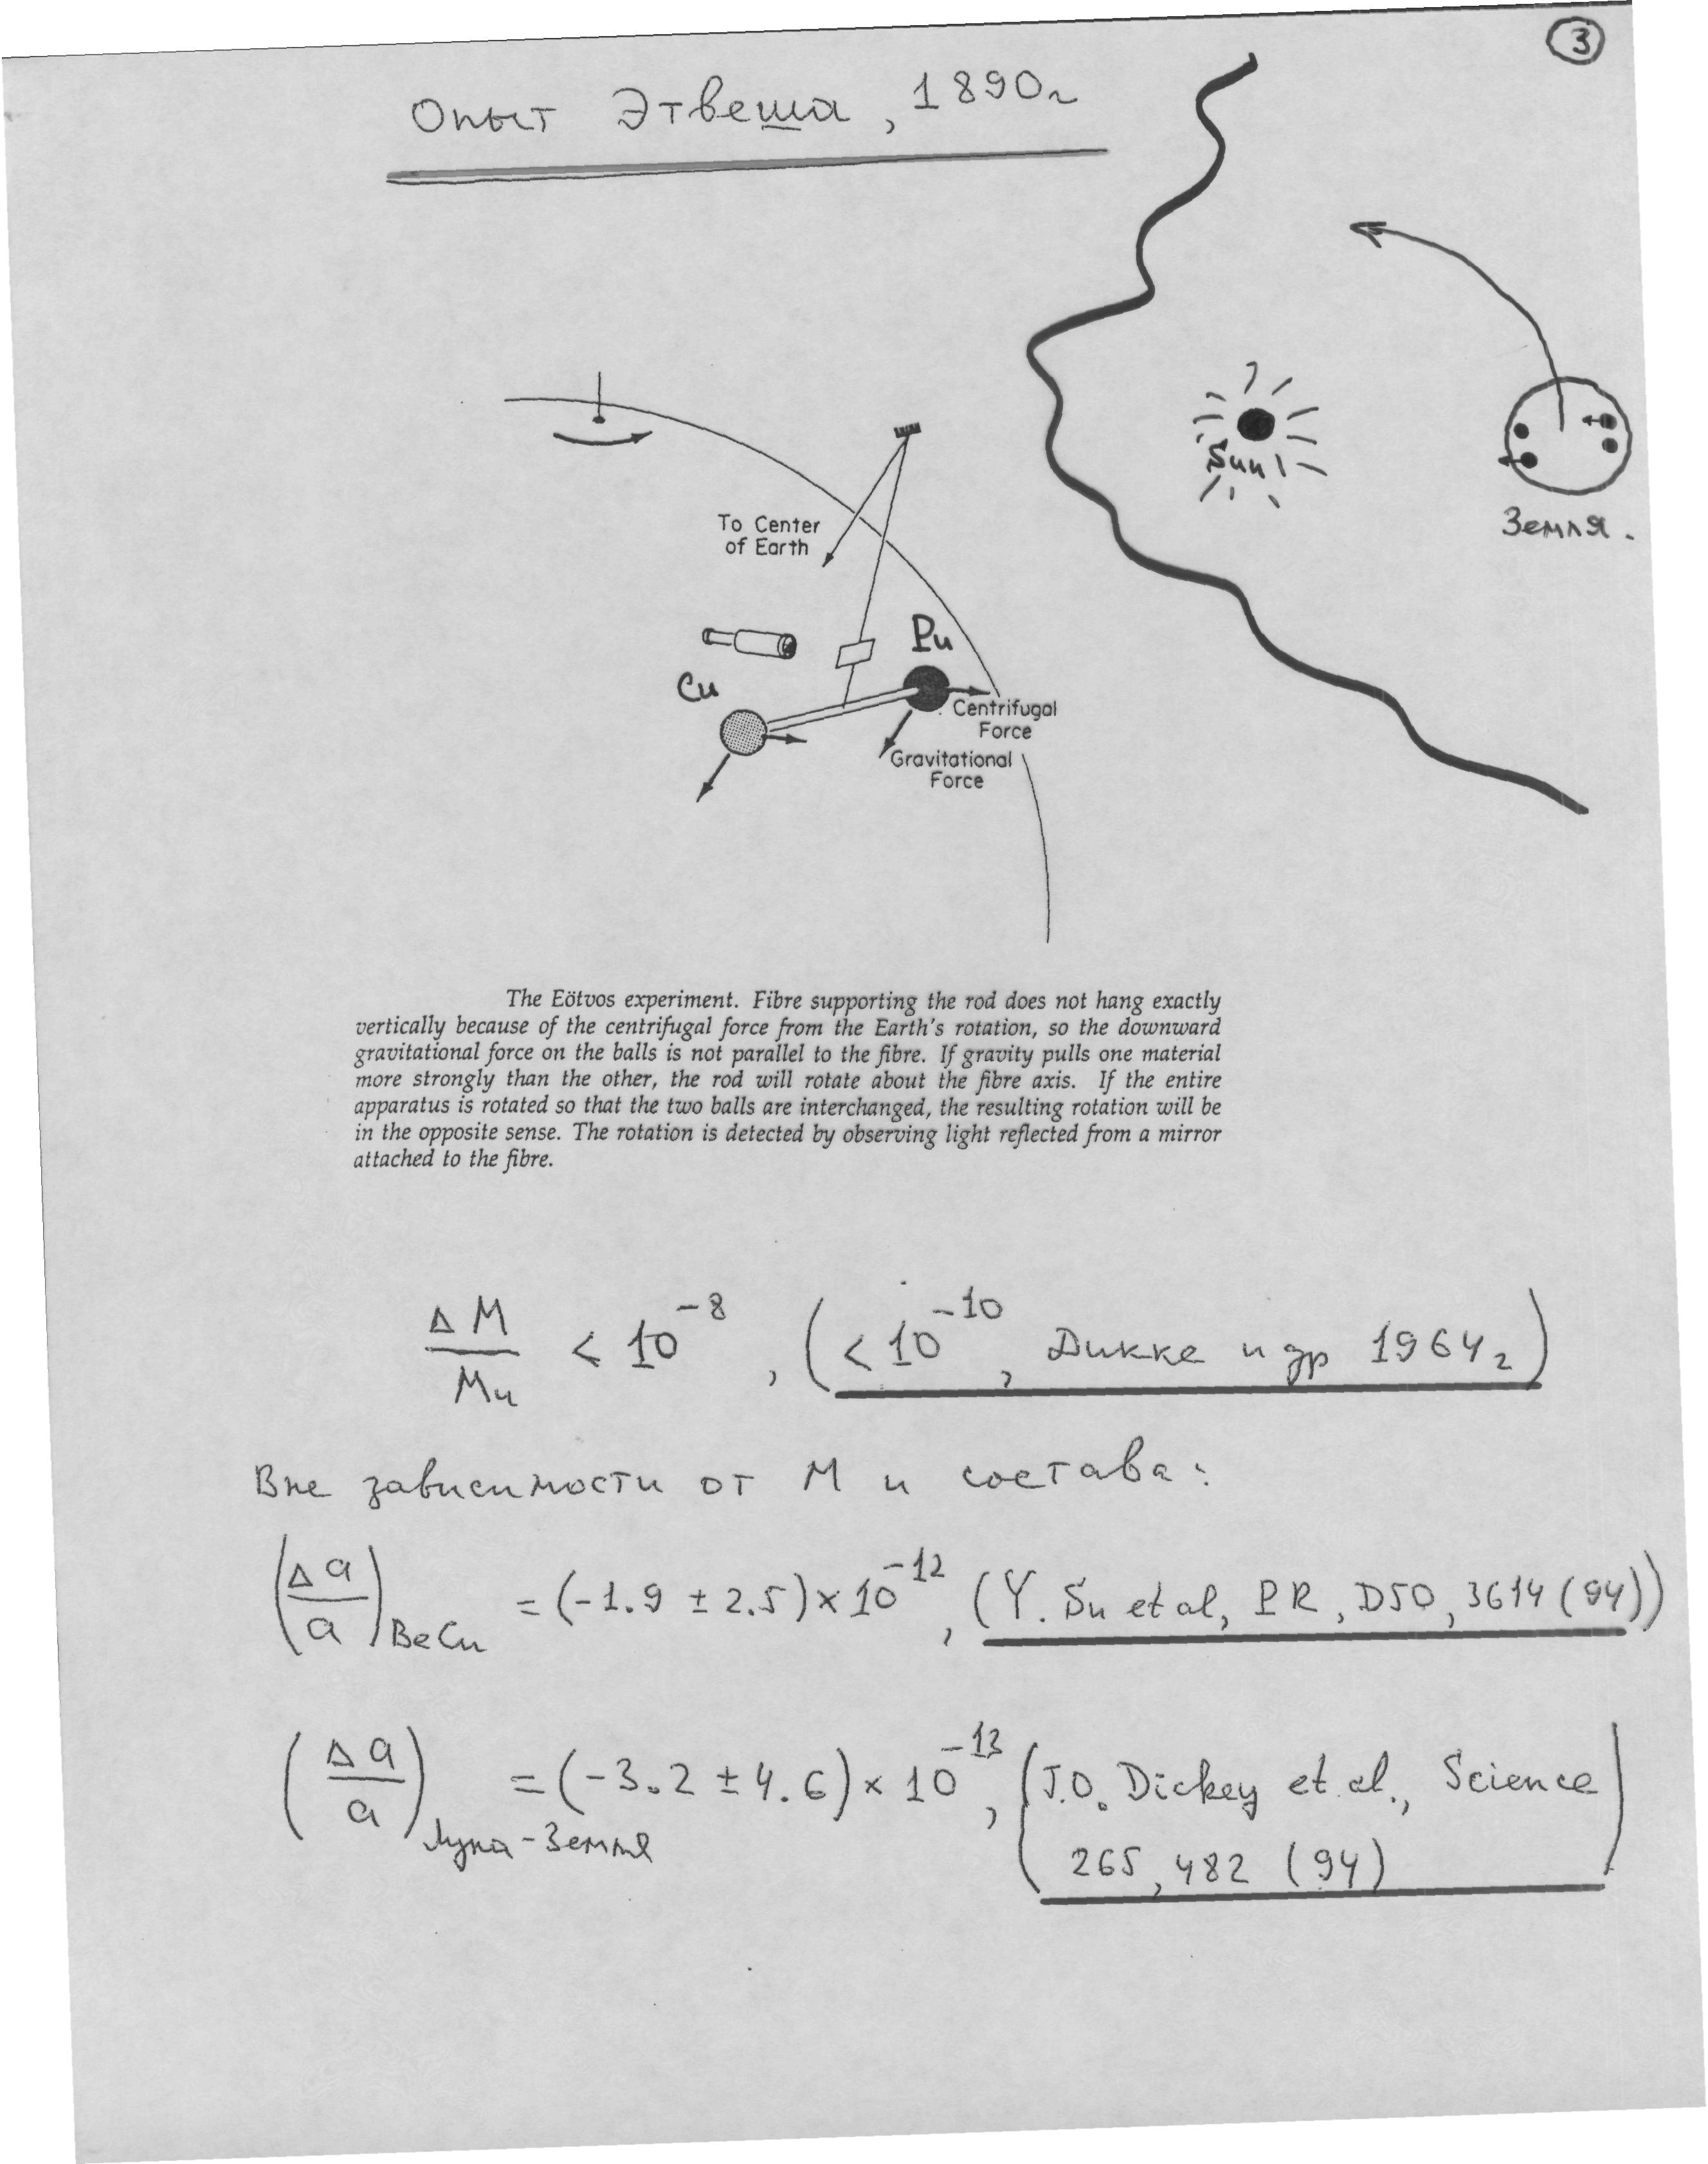 3
Опыт Этвеша, 1890г
Sun
Земля.
To Center
of Earth
Pu
Cu
Centrifugal
Force
Gravitational
Force
The Eötvos experiment. Fibre supporting the rod does not hang exactly
vertically because of the centrifugal force from the Earth's rotation, so the downward
gravitational force on the balls is not parallel to the fibre. If gravity pulls one material
more strongly than the other, the rod will rotate about the fibre axis. If the entire
apparatus is rotated so that the two balls are interchanged, the resulting rotation will be
in the opposite sense. The rotation is detected by observing light reflected from a mirror
attached to the fibre.
ΔM/Mи < 10^-8, (<10^-10, Дикке и др 1964г)
Вне зависимости от М и состава:
(Δa/a)BeCu = (-1.9 ± 2.5)×10^-12, (Y. Su et al, PR, D50, 3614 (94))
(Δa/a)Луна-Земля = (-3.2 ± 4.6)×10^-13, (J.O. Dickey et. al., Science
265, 482 (94))